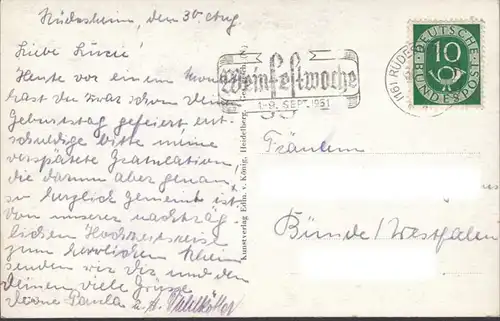 Rüdesheim, den 30. Aug.
Liebe Luzie!
Heute vor einem Monat
hast du zwar schon deinen
Geburtstag gefeiert ent-
schuldige bitte meine
verspätete Gratulation,
die darum aber genau
so herzlich gemeint ist.
Von unserer nachträg-
lichen Hochzeitsreise
zum herrlichen Rhein
senden wir Dir und den
Deinen viele Grüsse
Deine Paula u.
Kunstverlag Edm. v. König, Heidelberg
Weinfestwoche
1.-9. SEPT. 1951
(16) RÜDES
DEUTSCHE
BUNDESPOST
10
Fräulein
Bünde/Westfalen